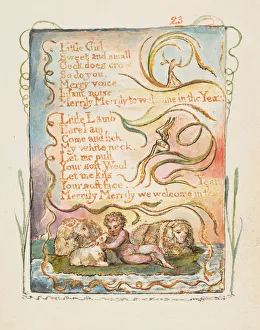 23
Little Girl
Sweet and small
Cock does crow
So do you.
Merry voice
Infant noise
Merrily Merrily to welcome in the Year
Little Lamb
Here I am,
Come and lick
My white neck.
Let me pull
Your soft Wool.
Let me kiss
Your soft face
Merrily Merrily we welcome in
Year